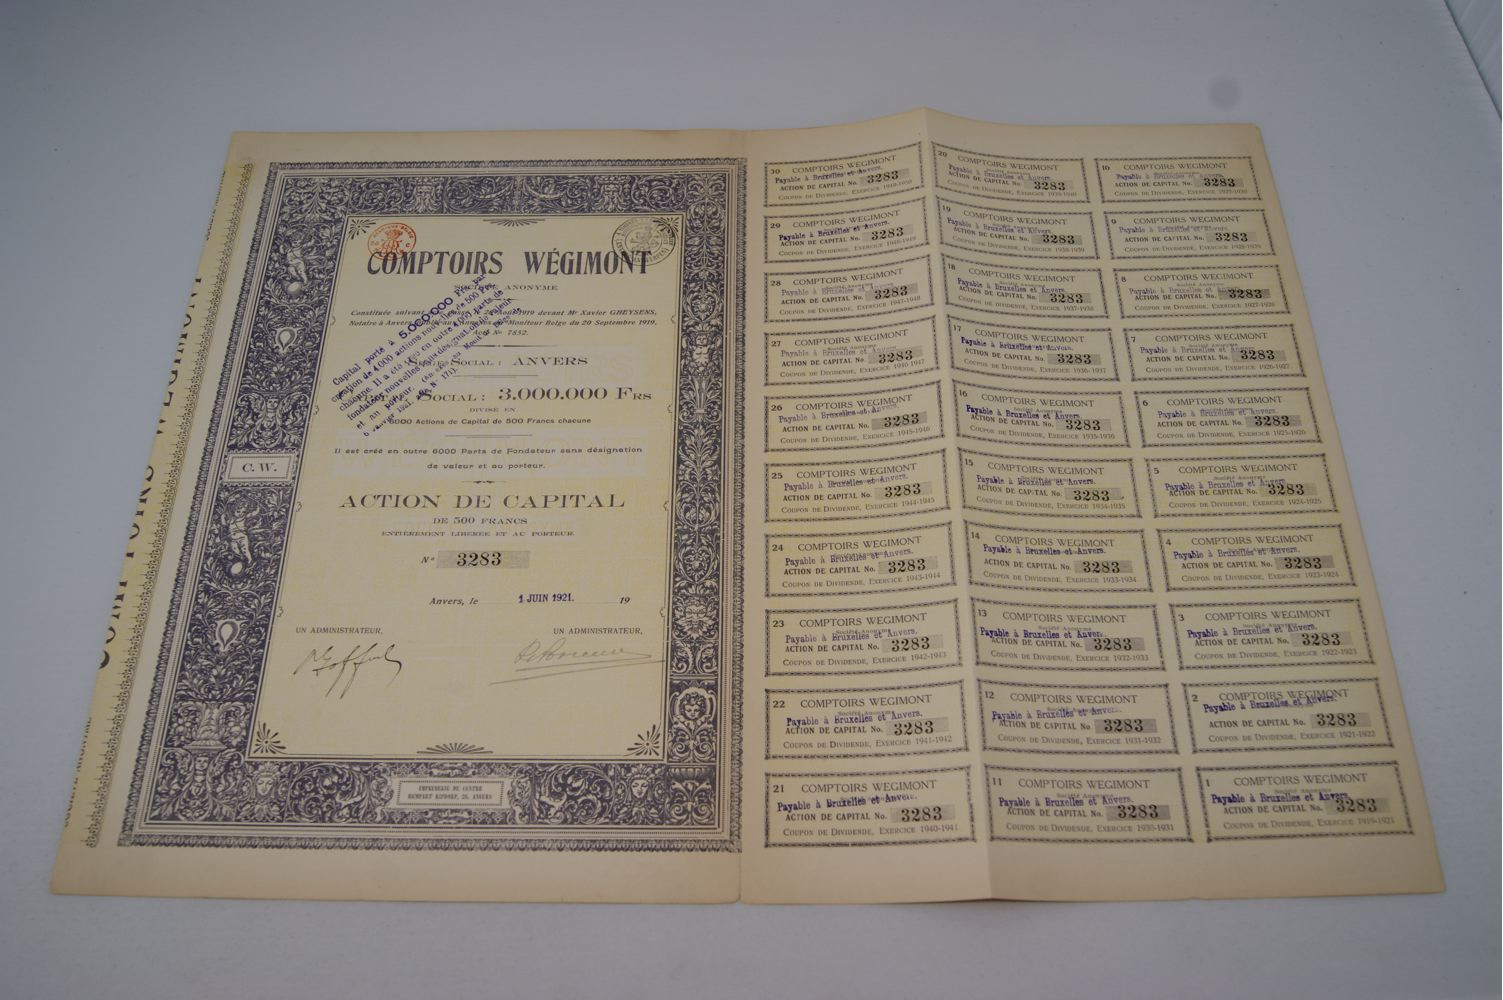 COMPTOIRS WÉGIMONT
SOCIÉTÉ ANONYME
Constituée suivant 1919 devant Me Xavier GHEYSENS,
Notaire à Anvers Moniteur Belge du 20 Septembre 1919,
No 7852.
SOCIAL : ANVERS
SOCIAL : 3.000.000 FRS
DIVISÉ EN
6000 Actions de Capital de 500 Francs chacune
Il est créé en outre 6000 Parts de Fondateur sans désignation
de valeur et au porteur.
Capital porté à 5.000.000 Frs par
création de 4.000 actions nouvelles de 500 Frs
chacune. Il a été créé en outre 4.000 parts de
fondateur nouvelles sans désignation de valeur
et au porteur.
C. W.
ACTION DE CAPITAL
DE 500 FRANCS
ENTIÈREMENT LIBÉRÉE ET AU PORTEUR.
No 3283
Anvers, le 1 JUIN 1921. 19
UN ADMINISTRATEUR, UN ADMINISTRATEUR,
IMPRIMERIE DU CENTRE
REMPART KIPDORP, 26, ANVERS
30 COMPTOIRS WÉGIMONT
Payable à Bruxelles et Anvers.
ACTION DE CAPITAL No. 3283
COUPON DE DIVIDENDE, EXERCICE 1949-1950
20 COMPTOIRS WÉGIMONT
Payable à Bruxelles et Anvers.
ACTION DE CAPITAL No. 3283
COUPON DE DIVIDENDE, EXERCICE 1939-1940
10 COMPTOIRS WÉGIMONT
Payable à Bruxelles et Anvers.
ACTION DE CAPITAL No. 3283
COUPON DE DIVIDENDE, EXERCICE 1929-1930
29 COMPTOIRS WÉGIMONT
Payable à Bruxelles et Anvers.
ACTION DE CAPITAL No. 3283
COUPON DE DIVIDENDE, EXERCICE 1948-1949
19 COMPTOIRS WÉGIMONT
Payable à Bruxelles et Anvers.
ACTION DE CAPITAL No. 3283
COUPON DE DIVIDENDE, EXERCICE 1938-1939
9 COMPTOIRS WÉGIMONT
Payable à Bruxelles et Anvers.
ACTION DE CAPITAL No. 3283
COUPON DE DIVIDENDE, EXERCICE 1928-1929
28 COMPTOIRS WÉGIMONT
Payable à Bruxelles et Anvers.
ACTION DE CAPITAL No. 3283
COUPON DE DIVIDENDE, EXERCICE 1947-1948
18 COMPTOIRS WÉGIMONT
Payable à Bruxelles et Anvers.
ACTION DE CAPITAL No. 3283
COUPON DE DIVIDENDE, EXERCICE 1937-1938
8 COMPTOIRS WÉGIMONT
Payable à Bruxelles et Anvers.
ACTION DE CAPITAL No. 3283
COUPON DE DIVIDENDE, EXERCICE 1927-1928
27 COMPTOIRS WÉGIMONT
Payable à Bruxelles et Anvers.
ACTION DE CAPITAL No. 3283
COUPON DE DIVIDENDE, EXERCICE 1946-1947
17 COMPTOIRS WÉGIMONT
Payable à Bruxelles et Anvers.
ACTION DE CAPITAL No. 3283
COUPON DE DIVIDENDE, EXERCICE 1936-1937
7 COMPTOIRS WÉGIMONT
Payable à Bruxelles et Anvers.
ACTION DE CAPITAL No. 3283
COUPON DE DIVIDENDE, EXERCICE 1926-1927
26 COMPTOIRS WÉGIMONT
Payable à Bruxelles et Anvers.
ACTION DE CAPITAL No. 3283
COUPON DE DIVIDENDE, EXERCICE 1945-1946
16 COMPTOIRS WÉGIMONT
Payable à Bruxelles et Anvers.
ACTION DE CAPITAL No. 3283
COUPON DE DIVIDENDE, EXERCICE 1935-1936
6 COMPTOIRS WÉGIMONT
Payable à Bruxelles et Anvers.
ACTION DE CAPITAL No. 3283
COUPON DE DIVIDENDE, EXERCICE 1925-1926
25 COMPTOIRS WÉGIMONT
Payable à Bruxelles et Anvers.
ACTION DE CAPITAL No. 3283
COUPON DE DIVIDENDE, EXERCICE 1944-1945
15 COMPTOIRS WÉGIMONT
Payable à Bruxelles et Anvers.
ACTION DE CAPITAL No. 3283
COUPON DE DIVIDENDE, EXERCICE 1934-1935
5 COMPTOIRS WÉGIMONT
Payable à Bruxelles et Anvers.
ACTION DE CAPITAL No. 3283
COUPON DE DIVIDENDE, EXERCICE 1924-1925
24 COMPTOIRS WÉGIMONT
Payable à Bruxelles et Anvers.
ACTION DE CAPITAL No. 3283
COUPON DE DIVIDENDE, EXERCICE 1943-1944
14 COMPTOIRS WÉGIMONT
Payable à Bruxelles et Anvers.
ACTION DE CAPITAL No. 3283
COUPON DE DIVIDENDE, EXERCICE 1933-1934
4 COMPTOIRS WÉGIMONT
Payable à Bruxelles et Anvers.
ACTION DE CAPITAL No. 3283
COUPON DE DIVIDENDE, EXERCICE 1923-1924
23 COMPTOIRS WÉGIMONT
Société Anonyme
Payable à Bruxelles et Anvers.
ACTION DE CAPITAL No. 3283
COUPON DE DIVIDENDE, EXERCICE 1942-1943
13 COMPTOIRS WÉGIMONT
Société Anonyme
Payable à Bruxelles et Anvers.
ACTION DE CAPITAL No. 3283
COUPON DE DIVIDENDE, EXERCICE 1932-1933
3 COMPTOIRS WÉGIMONT
Société Anonyme
Payable à Bruxelles et Anvers.
ACTION DE CAPITAL No. 3283
COUPON DE DIVIDENDE, EXERCICE 1922-1923
22 COMPTOIRS WÉGIMONT
Société Anonyme
Payable à Bruxelles et Anvers.
ACTION DE CAPITAL No. 3283
COUPON DE DIVIDENDE, EXERCICE 1941-1942
12 COMPTOIRS WÉGIMONT
Payable à Bruxelles et Anvers.
ACTION DE CAPITAL No. 3283
COUPON DE DIVIDENDE, EXERCICE 1931-1932
2 COMPTOIRS WÉGIMONT
Payable à Bruxelles et Anvers.
ACTION DE CAPITAL No. 3283
COUPON DE DIVIDENDE, EXERCICE 1921-1922
21 COMPTOIRS WÉGIMONT
Payable à Bruxelles et Anvers.
ACTION DE CAPITAL No. 3283
COUPON DE DIVIDENDE, EXERCICE 1940-1941
11 COMPTOIRS WÉGIMONT
Société Anonyme
Payable à Bruxelles et Anvers.
ACTION DE CAPITAL No. 3283
COUPON DE DIVIDENDE, EXERCICE 1930-1931
1 COMPTOIRS WÉGIMONT
Société Anonyme
Payable à Bruxelles et Anvers.
ACTION DE CAPITAL No. 3283
COUPON DE DIVIDENDE, EXERCICE 1919-1921